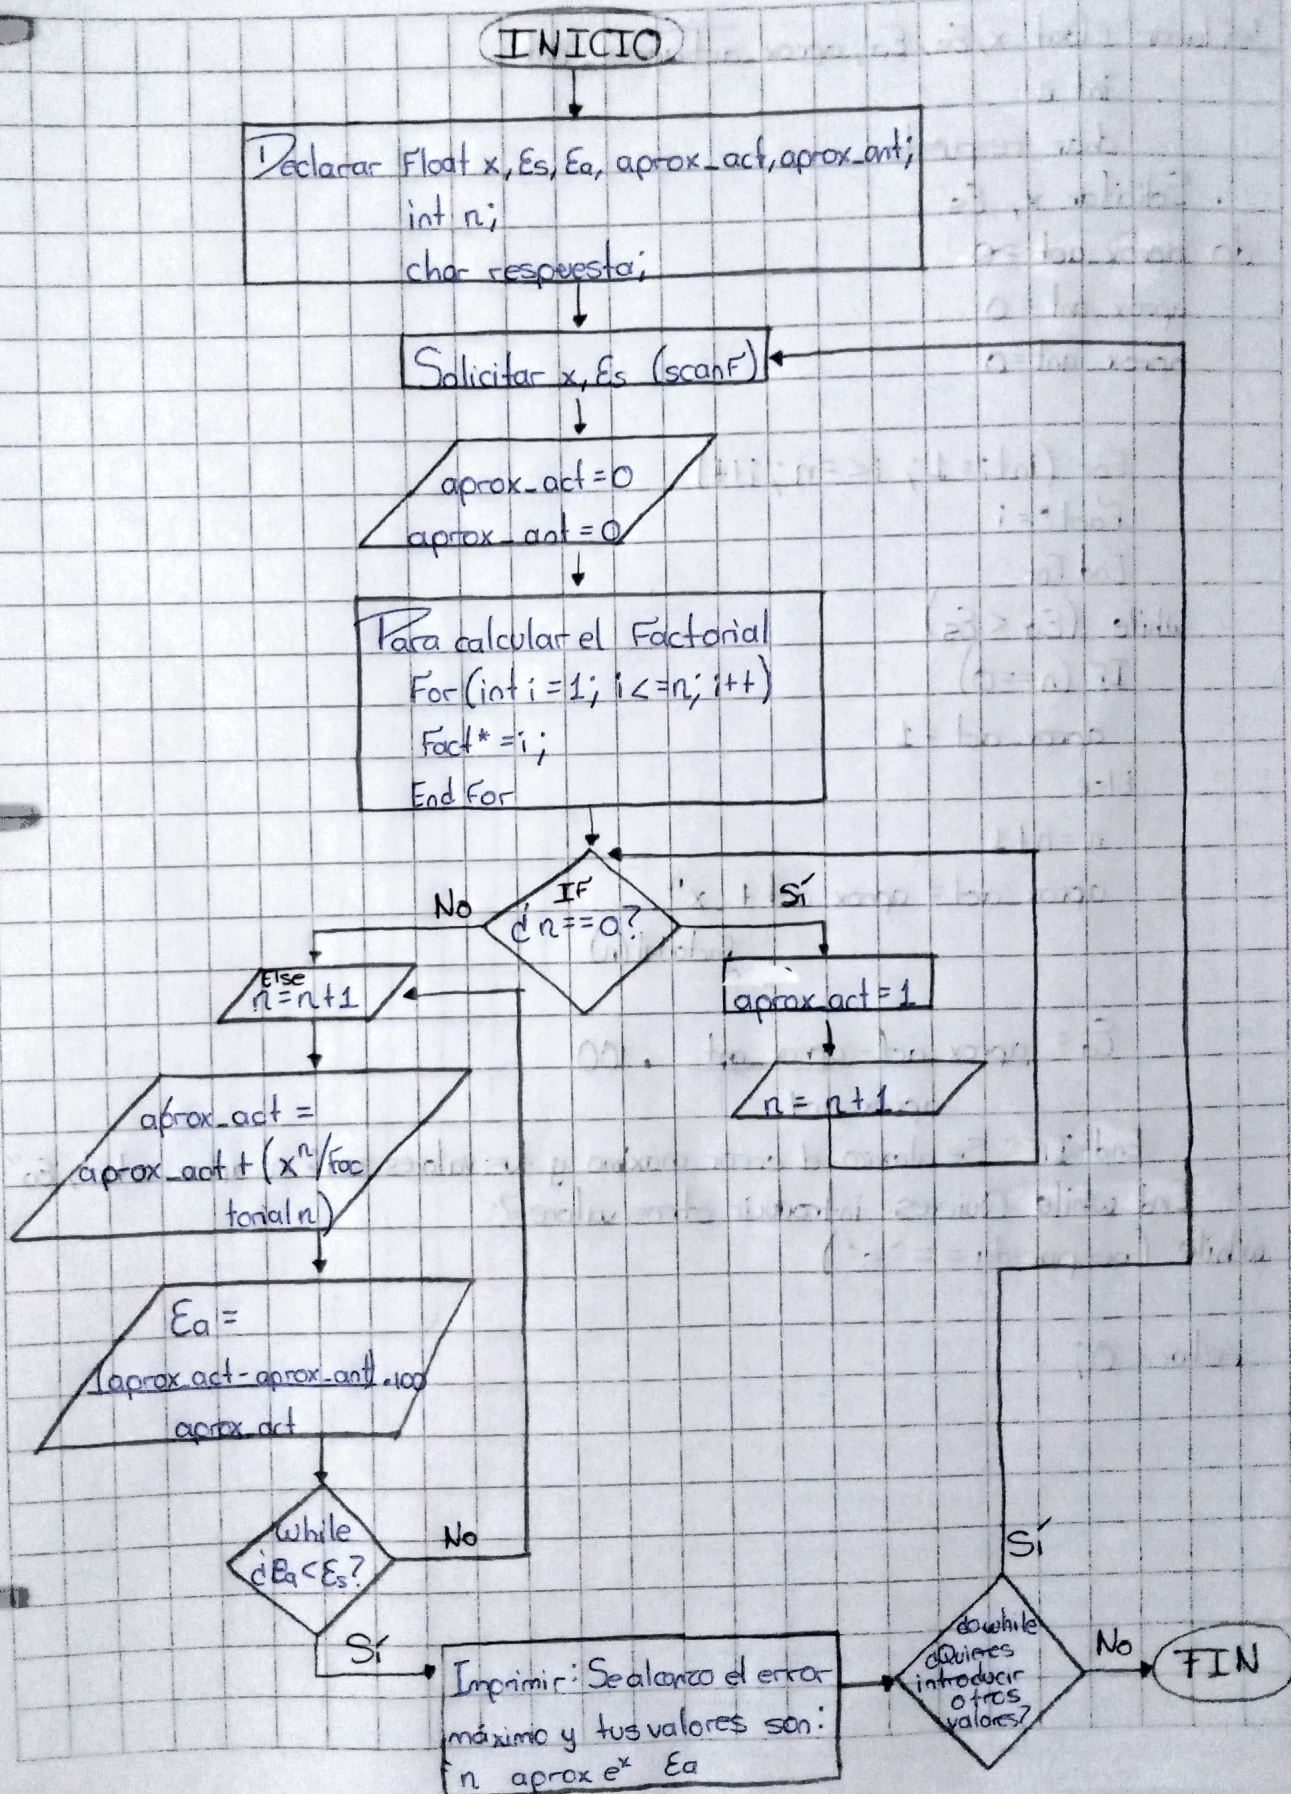 INICIO
Declarar Float x, Es, Ea, aprox_act, aprox_ant;
int n;
char respuesta;
Solicitar x, Es (scanF)
aprox_act = 0
aprox_ant = 0
Para calcular el Factorial
For (int i = 1; i <= n; i++)
Fact* = i;
End For
IF
¿n == 0?
No
Sí
Else
n = n + 1
aprox_act = 1
n = n + 1
aprox_act =
aprox_act + (x^n/Fac
torial n)
Ea =
(aprox_act - aprox_ant) . 100
aprox_act
while
¿Ea < Es?
No
Sí
Imprimir: Se alcanzo el error
máximo y tus valores son:
n aprox e^x Ea
do while
¿Quieres
introducir
otros
valores?
Sí
No
FIN